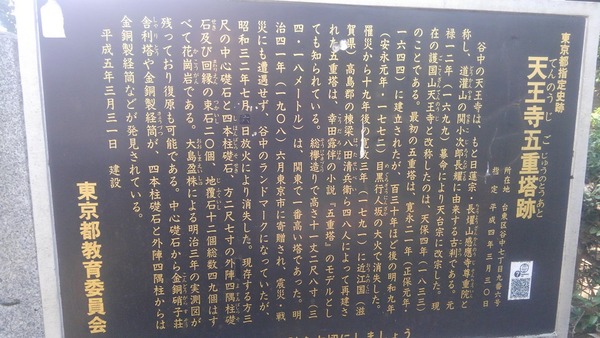 東京都指定史跡
天王寺五重塔跡
てんのうじごじゅうのとうあと
所在地 台東区谷中七丁目九番六号
指定 平成四年三月三〇日
谷中の天王寺は、もと日蓮宗・長耀山感應寺尊重院と
称し、道灌山の関小次郎長耀に由来する古刹である。元
禄一二年(一六九九)幕命により天台宗に改宗した。現
在の護国山天王寺と改称したのは、天保四年(一八三三)
のことである。最初の五重塔は、寛永二一年(正保元年・
一六四四)に建立されたが、百三十年ほど後の明和九年
(安永元年・一七七二)目黒行人坂の大火で消失した。
罹災から十九年後の寛政三年(一七九一)に近江国(滋
賀県)高島郡の棟梁八田清兵衛ら四八人によって再建さ
れた五重塔は、幸田露伴の小説『五重塔』のモデルとし
ても知られている。総欅造りで高さ十一丈二尺八寸(三
四・一八メートル)は、関東で一番高い塔であった。明
治四一年(一九〇八)六月東京市に寄贈され、震災・戦
災にも遭遇せず、谷中のランドマークになっていたが、
昭和三二年七月六日放火により消失した。現存する方三
尺の中心礎石と四本柱礎石、方二尺七寸の外陣四隅柱礎
石及び回縁の束石二〇個、地覆石十二個総数四九個はす
べて花崗岩である。大島盈株による明治三年の実測図が
残っており復原も可能である。中心礎石から金銅硝子荘
舎利塔や金銅製経筒が、四本柱礎石と外陣四隅柱からは
金銅製経筒などが発見されている。
平成五年三月三一日 建設
東京都教育委員会
切にしましょう